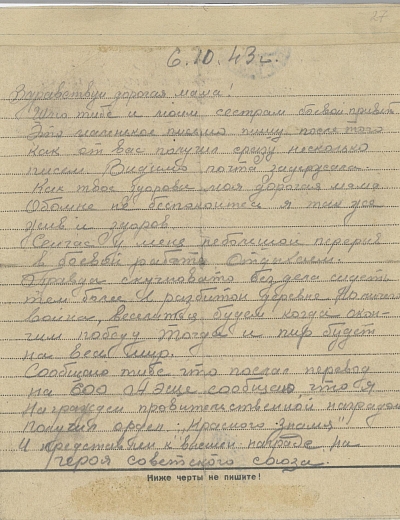 27
6.10.43 г.
Здравствуй дорогая мама!
Шлю тибе и моим сестрам боевой привет
Это маленькое письмо пишу после того
как от вас получил сразу несколько
писем. Видимо почта задержала.
Как твое здоровье моя дорогая мама
Обомне не беспокойтесь я так же
жив и здоров
Сейчас у меня небольшой перерыв
в боевой работе Отдыхаем.
Правда скучновато без дела сидеть
тем более в разбитой деревне.
война, веселится будем когда окон-
чим победу тогда и пир будет
на весь мир.
Сообщаю тибе что послал перевод
на 600 Еще сообщаю что я
Награжден правительственной наградой
Получил орден "Красного знамя"
И представлен к высшей награде на
героя советского союза.
Ниже черты не пишите!